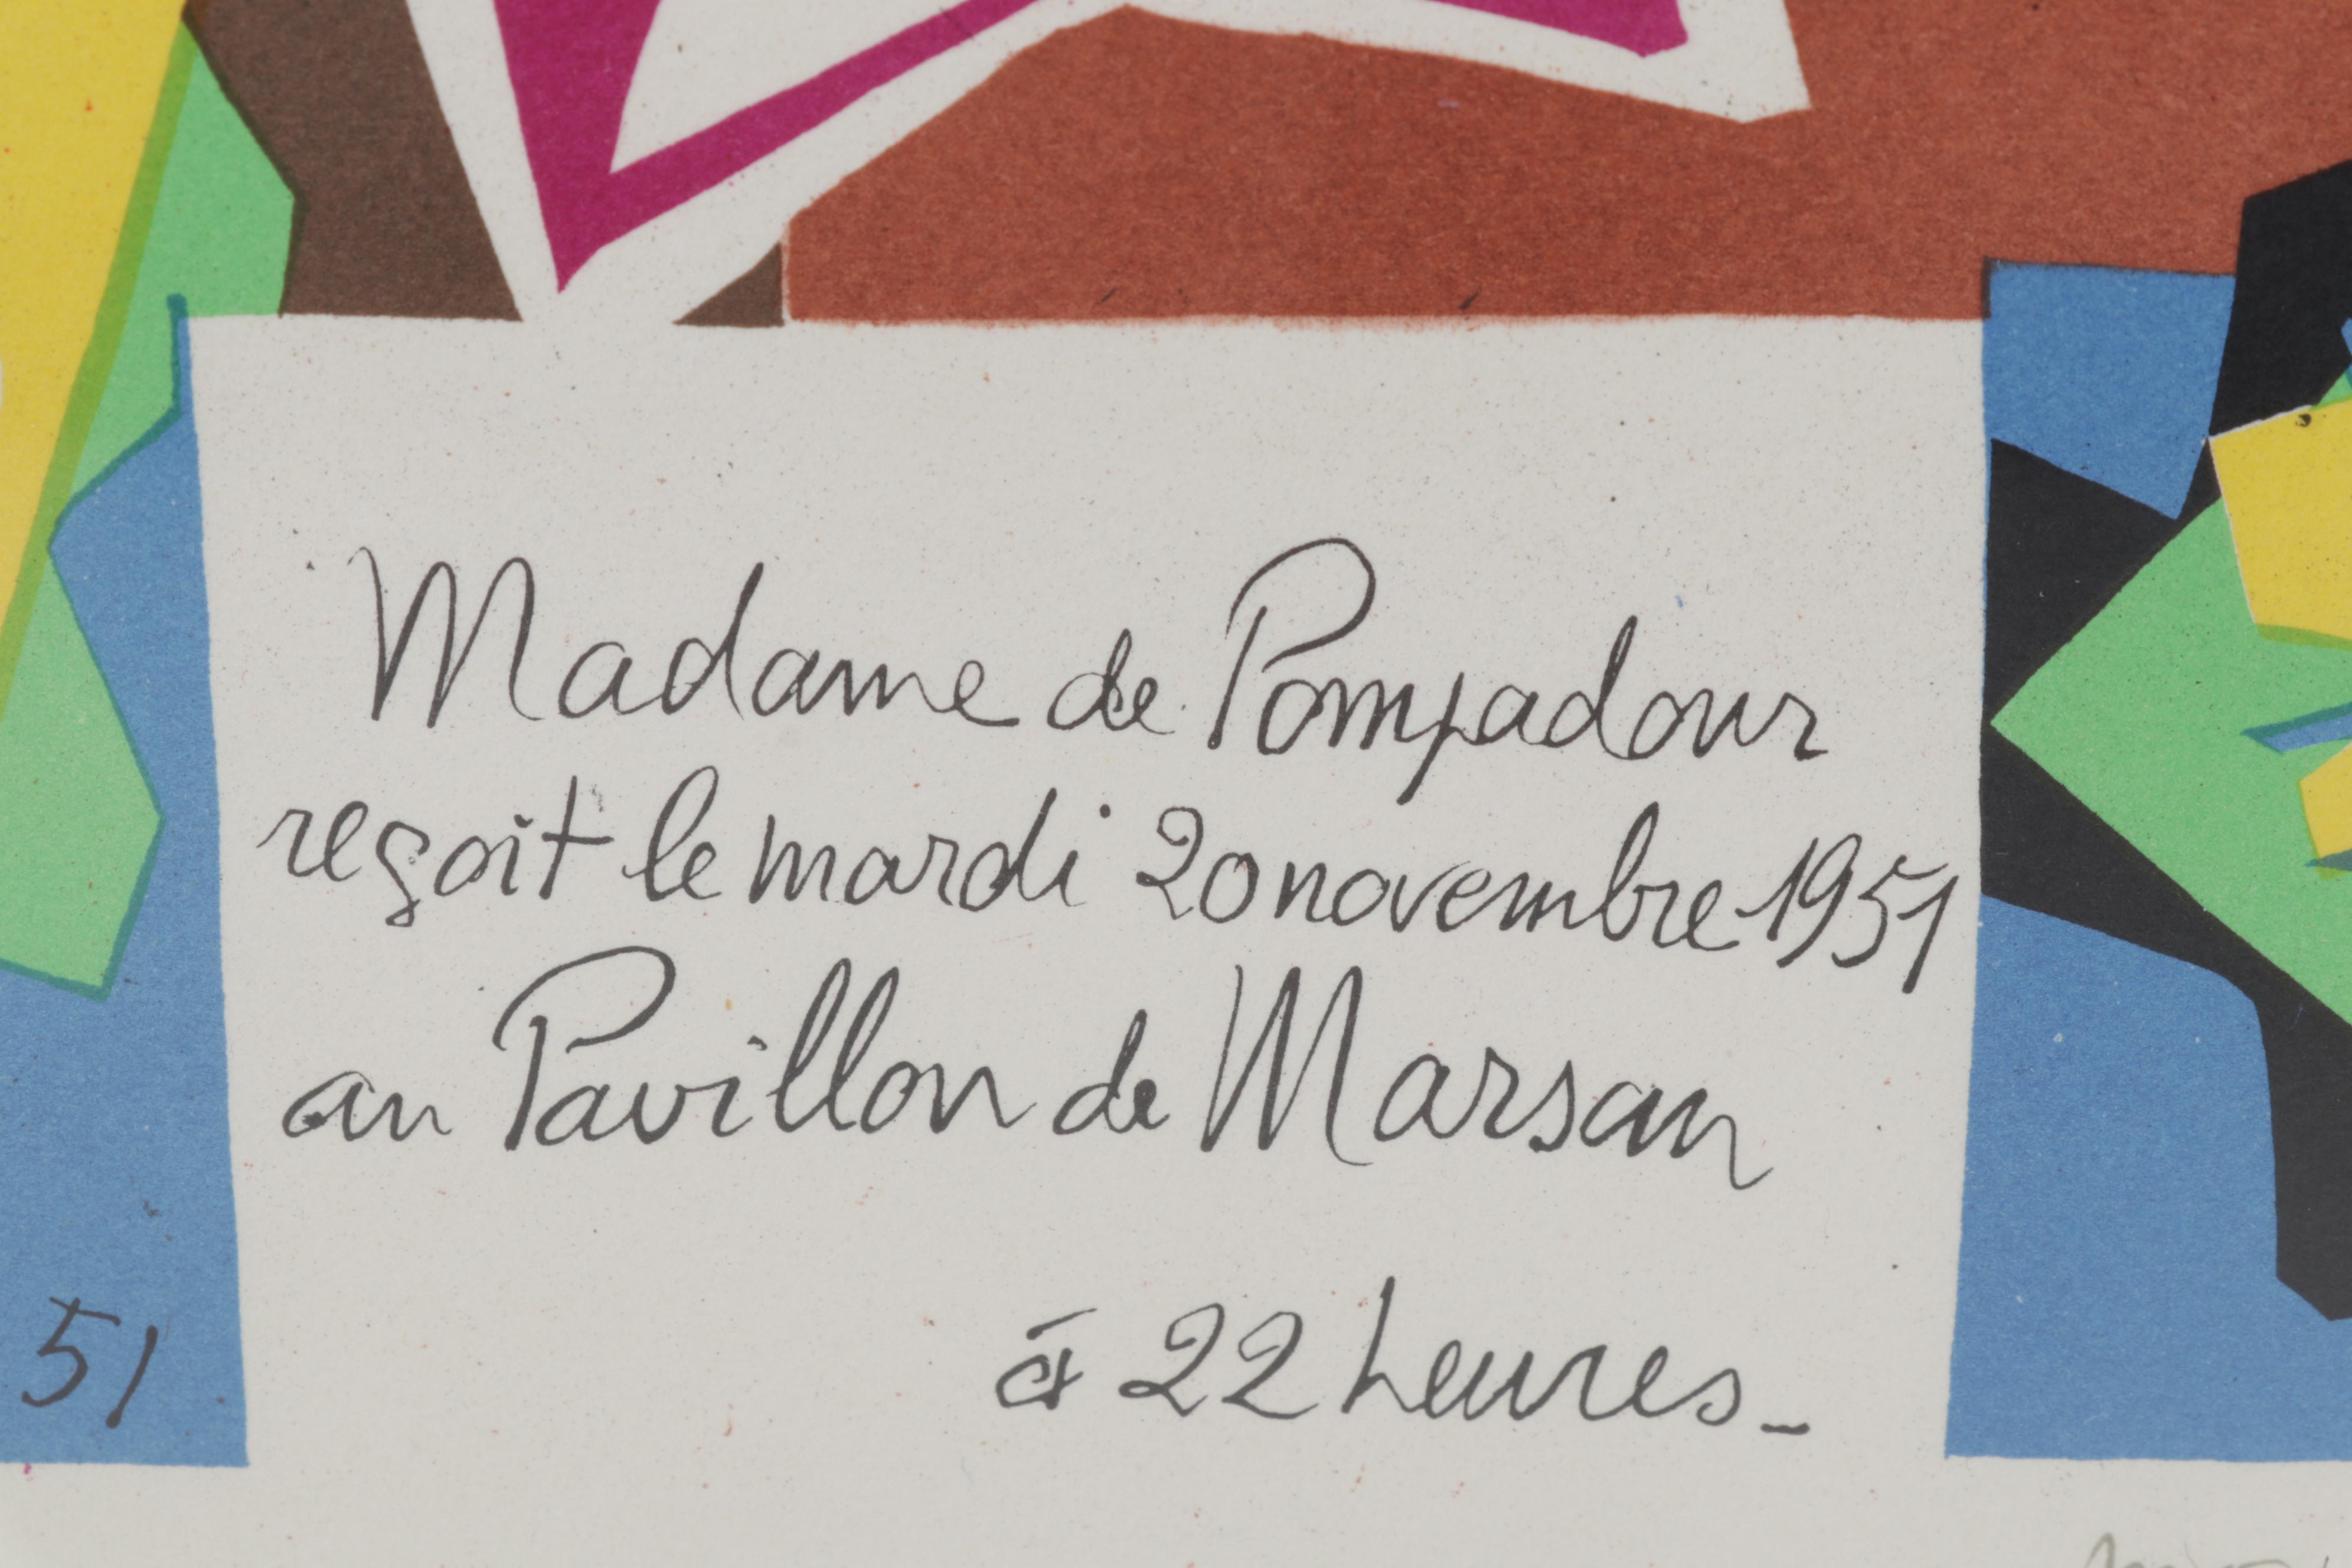 Madame de Pompadour
reçoit le mardi 20 novembre 1951
au Pavillon de Marsan
à 22 heures_
51